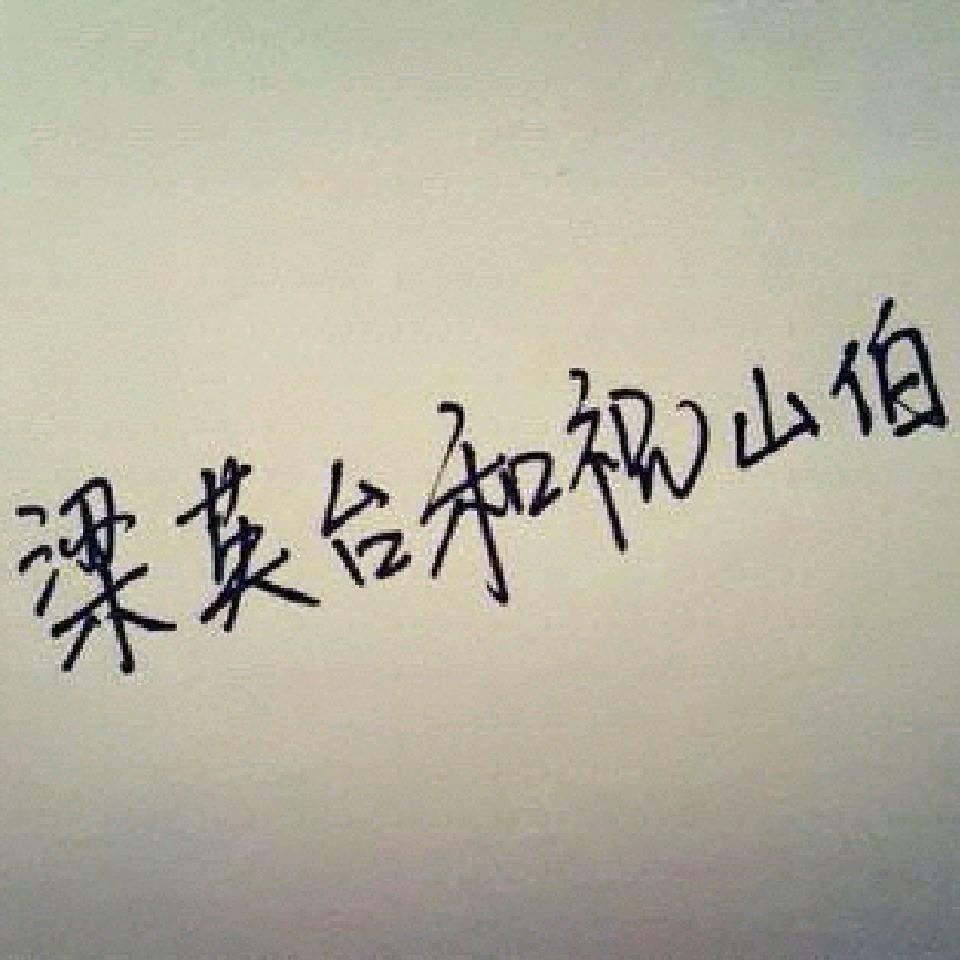 梁英台和祝山伯